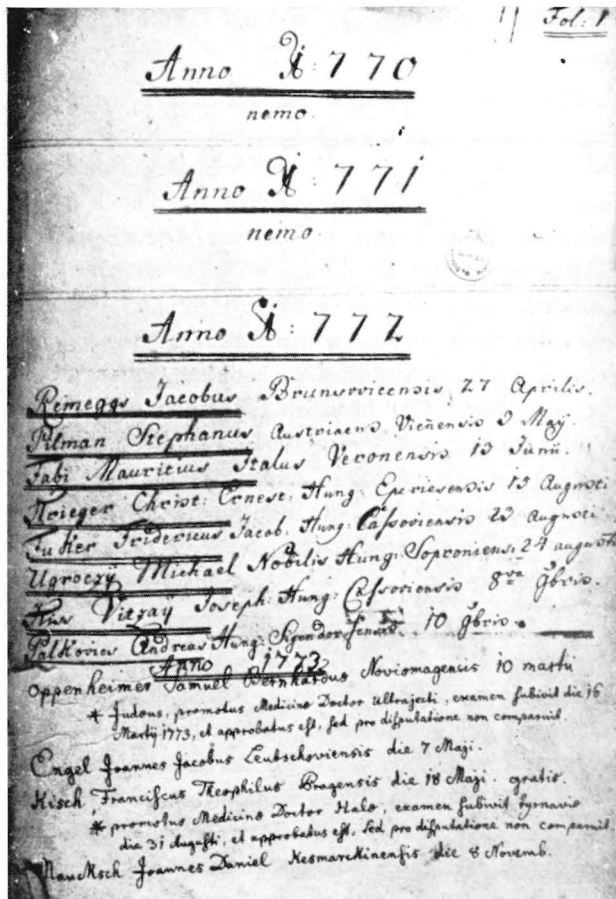 Fol: 1
Anno 1770
nemo.
Anno 1771
nemo
Anno 1772
Remeggs Jacobus Brunsvvicensis 27 Aprilis.
Pilman Stephanus Austriacus Vieñensis 9 Maÿ.
Fabi Mauritius Italus Veronensis 13 Junii.
Krieger Christ: Ernest: Hung: Eperiesensis 13 Augusti
Fuker Fridericus Jacob. Hung: Cassoviensis 23 Augusti
Ugroczÿ Michael Nobilis Hung: Soproniens: 24 augusti
Kiss Vitzaÿ Joseph: Hung: Cassoviensis 8va 9bris.
Pilkovics Andreas Hung: 10 9bris.
Anno 1773
Oppenheimer Samuel Bernhardus Noviomagensis 10 martii
* Judæus, promotus Medicinæ Doctor Ultrajecti, examen subivit die 16
Martij 1773, et approbatus est, sed pro disputatione non comparuit.
Engel Joannes Jacobus Leutschoviensis die 7 Maji.
Kisch Franciscus Theophilus Pragensis die 18 Maji. gratis.
* promotus Medicinæ Doctor Halæ, examen subivit Tyrnaviæ
die 31 Augusti, et approbatus est, sed pro disputatione non comparuit
Nauksch Joannes Daniel Kesmarckinensis die 8 Novemb.